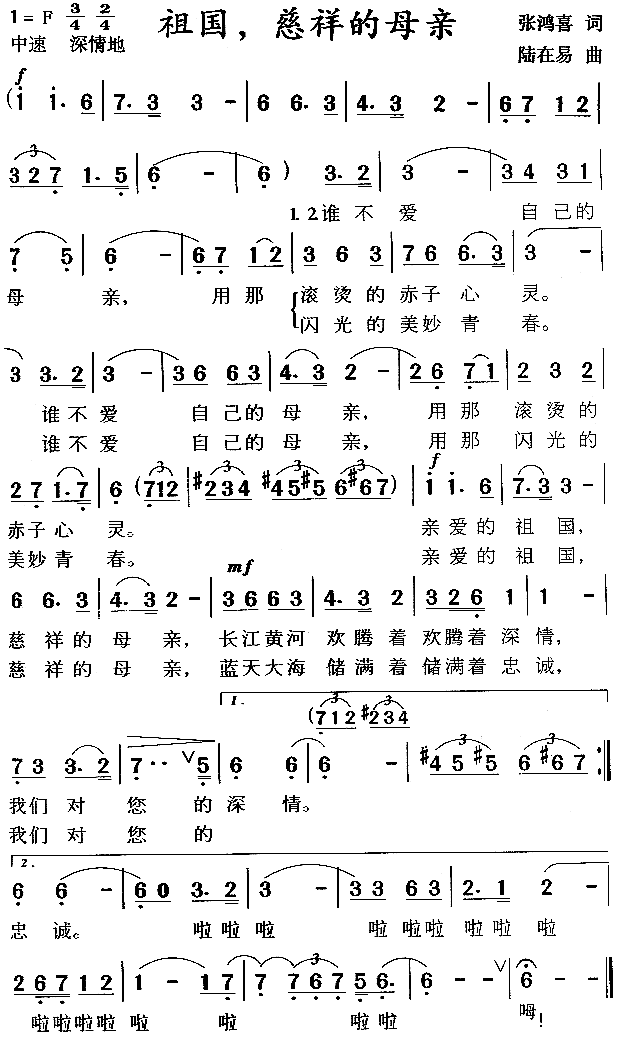 1 = F 3/4 2/4 祖国，慈祥的母亲 张鸿喜 词
中速 深情地 陆在易 曲
f
( i i. 6 | 7. 3 3 - | 6 6. 3 | 4. 3 2 - | 6 7 1 2 |
3 2 7 1. 5 | 6 - | 6 ) 3. 2 | 3 - | 3 4 3 1 |
1. 2谁 不 爱 自己的
7 5 | 6 - | 6 7 1 2 | 3 6 3 | 7 6 6. 3 | 3 - |
母 亲, 用那 滚烫的赤子心 灵。
闪光的美妙青 春。
3 3. 2 | 3 - | 3 6 6 3 | 4. 3 2 - | 2 6 7 1 | 2 3 2 |
谁不爱 自己的母 亲, 用那 滚烫的
谁不爱 自己的母 亲, 用那 闪光的
f
2 7 1. 7 | 6 (7 1 2 | #2 3 4 #4 5 #5 6 #6 7) | i i. 6 | 7. 3 3 - |
赤子心 灵。 亲爱的祖 国,
美妙青 春。 亲爱的祖 国,
mf
6 6. 3 | 4. 3 2 - | 3 6 6 3 | 4. 3 2 | 3 2 6 1 | 1 - |
慈祥的母 亲, 长江黄河 欢腾着 欢腾着深 情,
慈祥的母 亲, 蓝天大海 储满着 储满着忠 诚,
1.
(7 1 2 #2 3 4
7 3 3. 2 | 7 · · ∨ 5 | 6 6 | 6 - | #4 5 #5 6 #6 7 :||
我们 对 您 的 深 情。
我们 对 您 的
2.
6 6 - | 6 0 3. 2 | 3 - | 3 3 6 3 | 2. 1 2 - |
忠 诚。 啦啦 啦 啦 啦啦 啦 啦 啦
2 6 7 1 2 | 1 - 1 7 | 7 7 6 7 5 6. | 6 - - ∨ | 6 - ||
啦啦啦啦 啦 啦 啦 啦 呣!